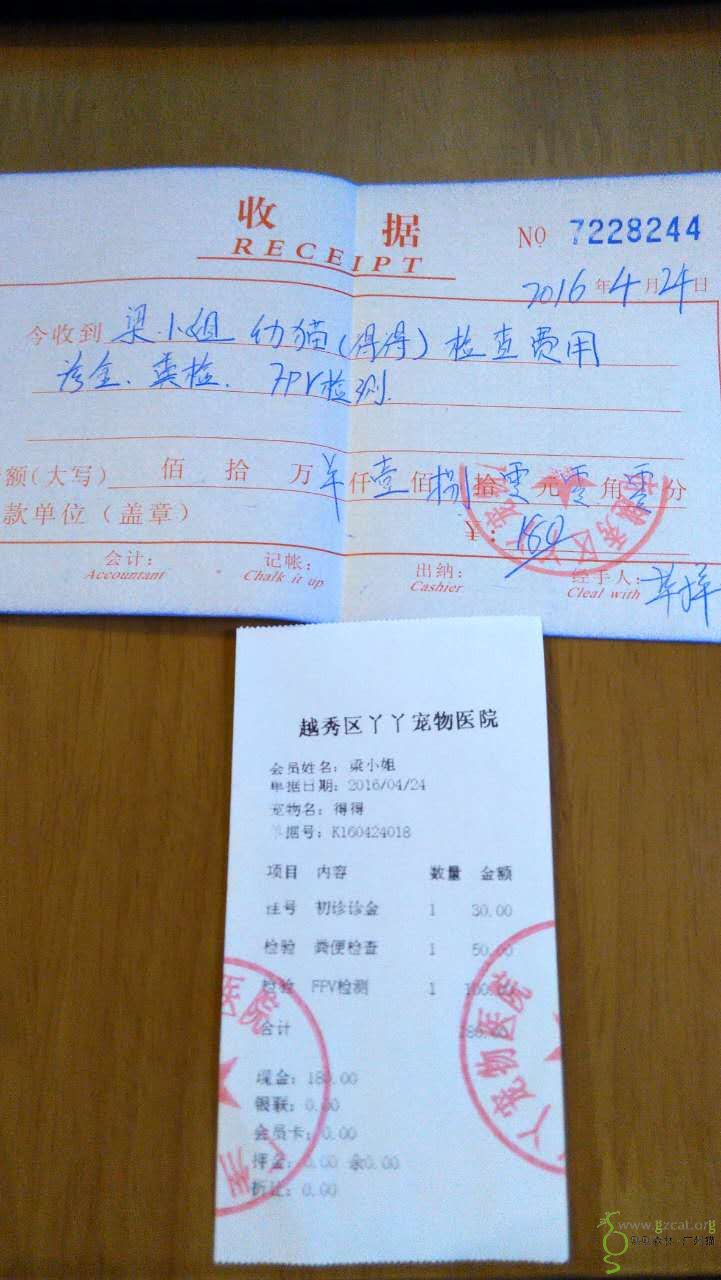 收 据
RECEIPT
NO 7228244
2016 年 4 月 24 日
今收到 梁小姐 幼猫(得得) 检查费用
诊金、粪检、FPV检测
额(大写) 佰 拾 万 羊 仟 壹 佰 捌 拾 零 元 零 角 零 分
款单位(盖章) ¥: 180
会计: 记帐: 出纳: 经手人:
Accountant Chalk it up Cashier Cleal with
越秀区丫丫宠物医院
会员姓名: 梁小姐
单据日期: 2016/04/24
宠物名: 得得
据号: K160424018
项目 内容 数量 金额
挂号 初诊诊金 1 30.00
检验 粪便检查 1 50.00
检验 FPV检测 1 100.00
合计 180.00
现金: 180.00
银联: 0.00
会员卡: 0.00
押金: 0.00 余0.00
折让: 0.00
丫宠物医院
医院
州
www.gzcat.org